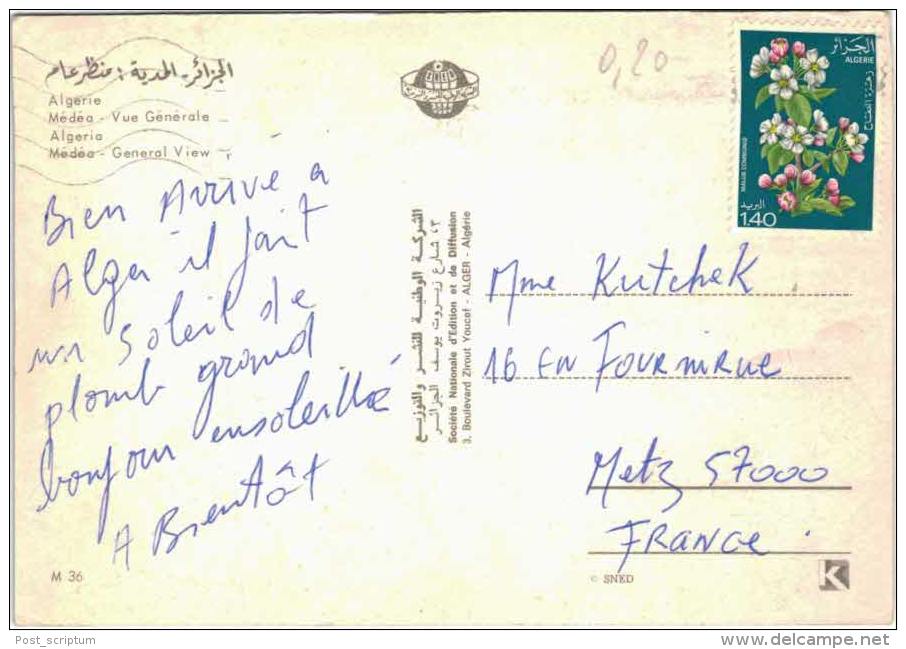 الجزائر - المدية : منظر عام
Algerie
Médéa - Vue Générale
Algeria
Médéa - General View
Bien Arrivé a
Alger il fait
un Soleil de
plomb grand
bonjour ensoleillé
A Bientôt
M 36
الشركة الوطنية للنشر والتوزيع
٣ شارع زيروت يوسف الجزائر
Société Nationale d'Edition et de Diffusion
3. Boulevard Zirout Youcef - ALGER - Algérie
0,20
الجزائر
ALGERIE
زهرة التفاح
MALUS COMMUNIS
البريد
1.40
Mme Kutchek
16 EN Fournirue
Metz 57000
FRANCE.
© SNED
K
Post_scriptum
www.delcampe.net